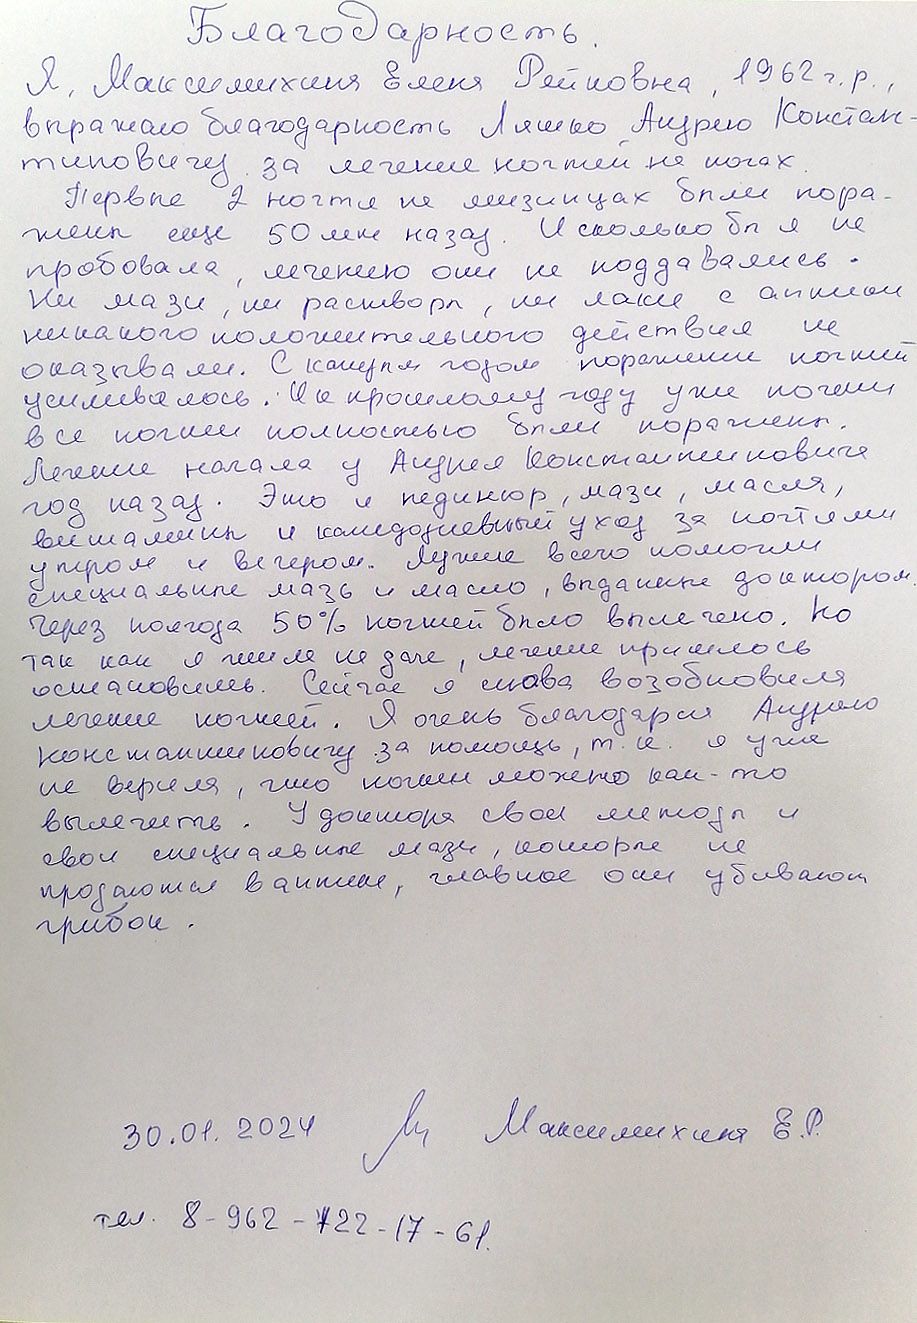 Благодарность.
Я, Максимихина Елена Рейновна, 1962 г.р.,
выражаю благодарность Ляшко Андрею Констан-
тиновичу за лечение ногтей на ногах
Первые 2 ногтя на мизинцах были пора-
жены еще 50 лет назад. И сколько бы я не
пробовала, лечению они не поддавались.
Ни мази, ни растворы, ни лаки с аптеки
никакого положительного действия не
оказывали. С каждым годом поражение ногтей
усиливалось. И к прошлому году уже почти
все ногти полностью были поражены.
Лечение начала у Андрея Константиновича
год назад. Это и педикюр, мази, масла,
витамины и каждодневный уход за ногтями
утром и вечером. Лучше всего помогли
специальные мазь и масло, выданные доктором.
Через полгода 50% ногтей было вылечено. Но
так как я жила на даче, лечение пришлось
остановить. Сейчас я снова возобновила
лечение ногтей. Я очень благодарна Андрею
Константиновичу за помощь, т.к. я уже
не верила, что ногти можно как-то
вылечить. У доктора свои методы и
свои специальные мази, которые не
продаются в аптеке, главное они убивают
грибок.
30.01.2024 Максимихина Е.Р.
тел. 8-962-722-17-61.